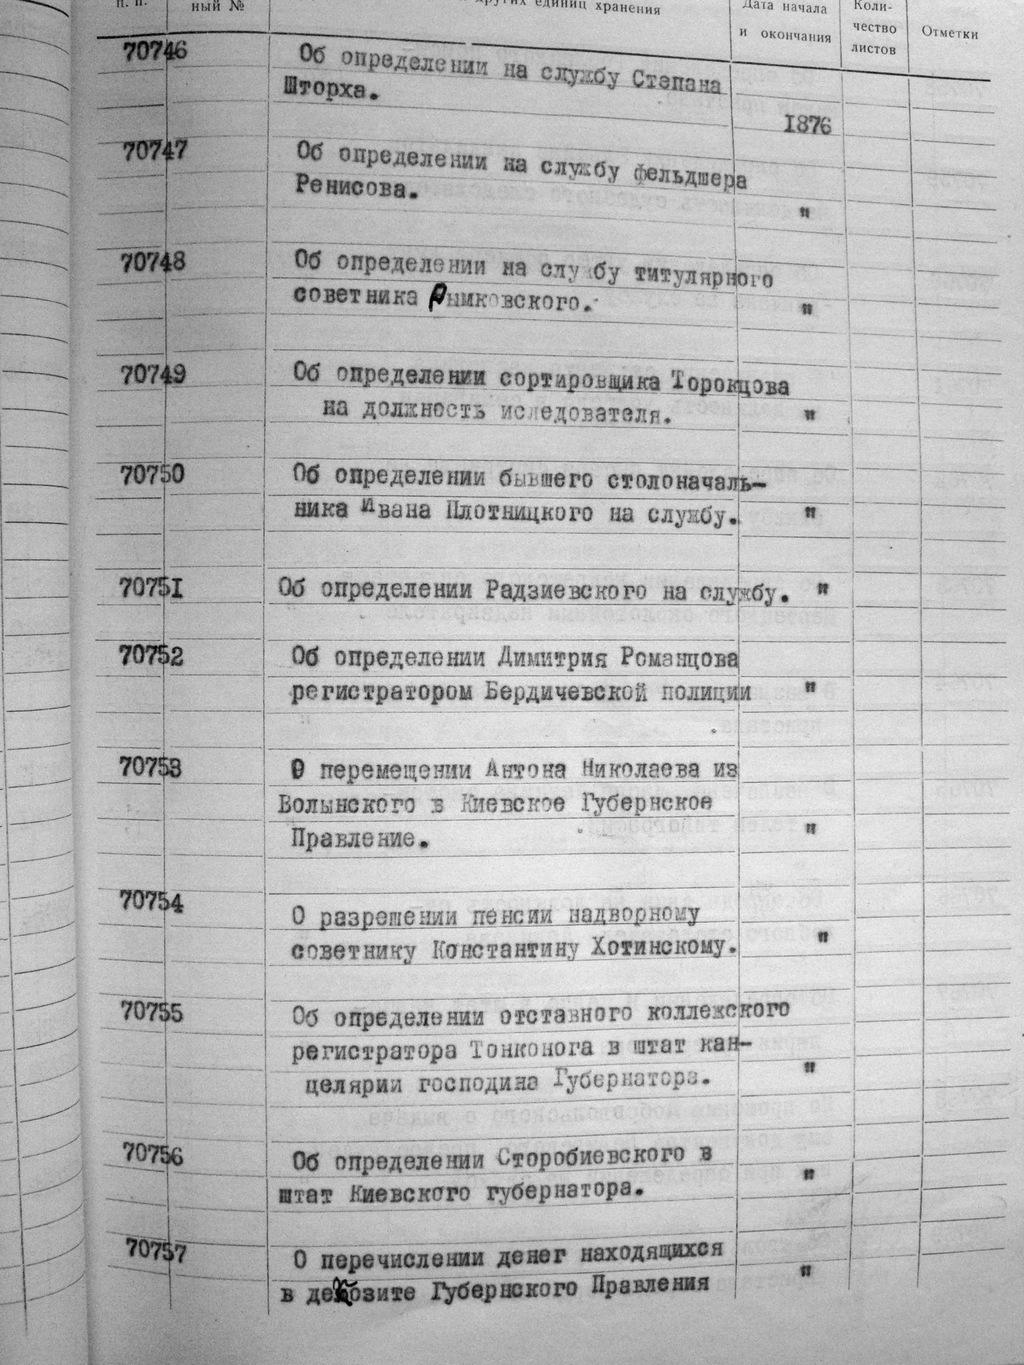 п. п.
ный №
других единиц хранения
Дата начала
и окончания
Коли-
чество
листов
Отметки
70746 Об определении на службу Степана
Шторха.
1876
70747 Об определении на службу фельдшера
Ренисова. "
70748 Об определении на службу титулярного
советника Рымковского. "
70749 Об определении сортировщика Торокцова
на должность иследователя. "
70750 Об определении бывшего столоначаль-
ника Ивана Плотницкого на службу. "
70751 Об определении Радзиевского на службу. "
70752 Об определении Димитрия Романцова
регистратором Бердичевской полиции "
70753 О перемещении Антона Николаева из
Волынского в Киевское Губернское
Правление. "
70754 О разрешении пенсии надворному
советнику Константину Хотинскому. "
70755 Об определении отставного коллежского
регистратора Тонконога в штат кан-
целярии господина Губернатора. "
70756 Об определении Сторобиевского в
штат Киевского губернатора. "
70757 О перечислении денег находящихся
в депозите Губернского Правления "